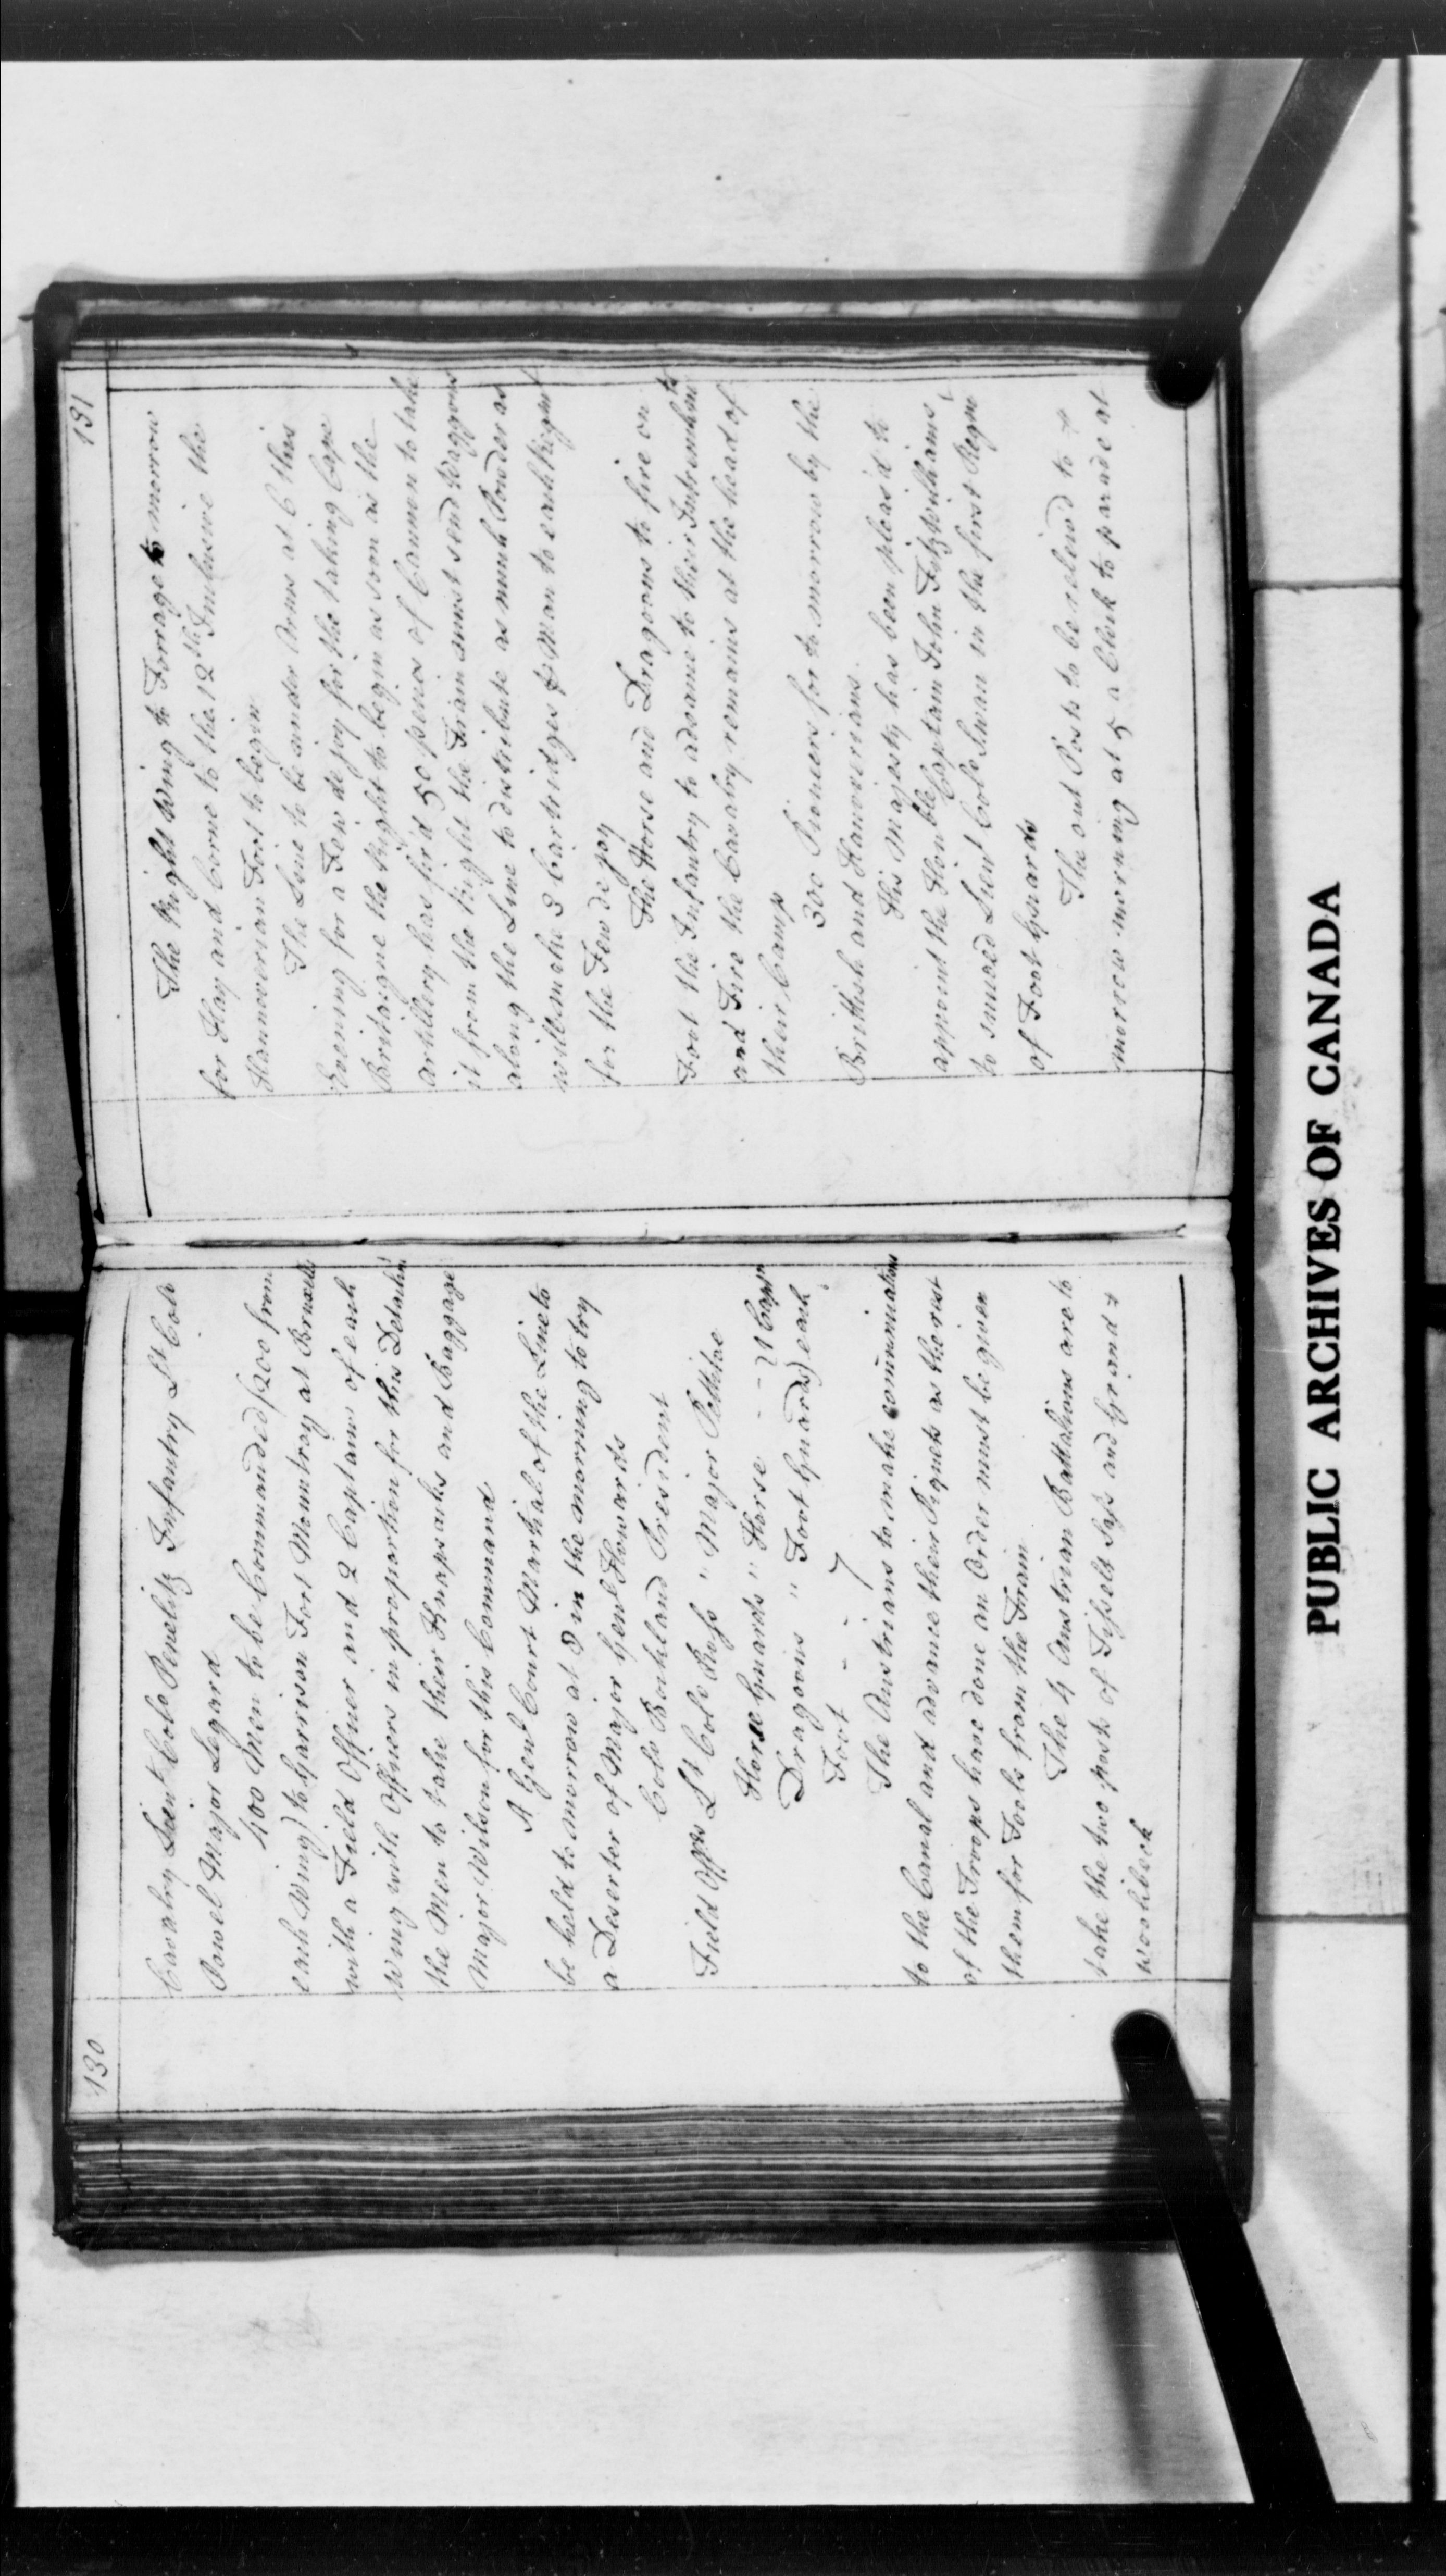 130
Cavalry Lieut Colo Penelitz Infantry Lt Colo
Powel Major Legard
400 Men to be Commanded (200 from
each Wing) to Garrison Fort Mountray at Brussells
with a Field Officer and 2 Captains of each
Wing with Officers in proportion for this Detachmt
the Men to take their Knapsacks and Baggage
Major Wilson for this Command
A Genl Court Martial of the Line to
be held to morrow at 8 in the morning to try
a Deserter of Major Genl Howards
Colo Bockland President
Field Offrs Lt Colo Russ " Major Pettitoe
Horse Guards " Horse - - } 1 Captn
Dragoons " Foot Guards } each
Foot - - 7
The Austrians to make communications
to the Canal and advance their Piquets as the rest
of the Troops have done an Order must be given
them for Tools from the Train
The 4 Austrian Battalions are to
take the two posts of Tisselt Sass and Grand
Woolibeck
131
The Right Wing to Forrage to morrow
for Hay and Corne to the 12th Inclusive the
Hannoverian Foot to begin
The Line to be under Arms at 6 this
Evening for a Few de joy for the taking Cape
Bridaigne the Right to begin as soon as the
artillery has fir'd 50 peices of Cannon to take
it from the Right the Train must send Waggons
along the Line to distribute as much Powder as
will make 3 Cartridges p Man to each Regimt
for the Few de joy
The Horse and Dragoons to fire on
Foot the Infantry to advance to their Intrenchmts
and Fire the Cavalry remains at the head of
their Camp
300 Pioneers for to morrow by the
Brittish and Hanoverians
His Majesty has been pleas'd to
appoint the Honble Captain John Fitzwilliams
to succed Lieut Colo Swan in the first Regmt
of Foot Guards
The out Posts to be releiv'd to
morrow morning at 5 a Clock to parade at
PUBLIC ARCHIVES OF CANADA